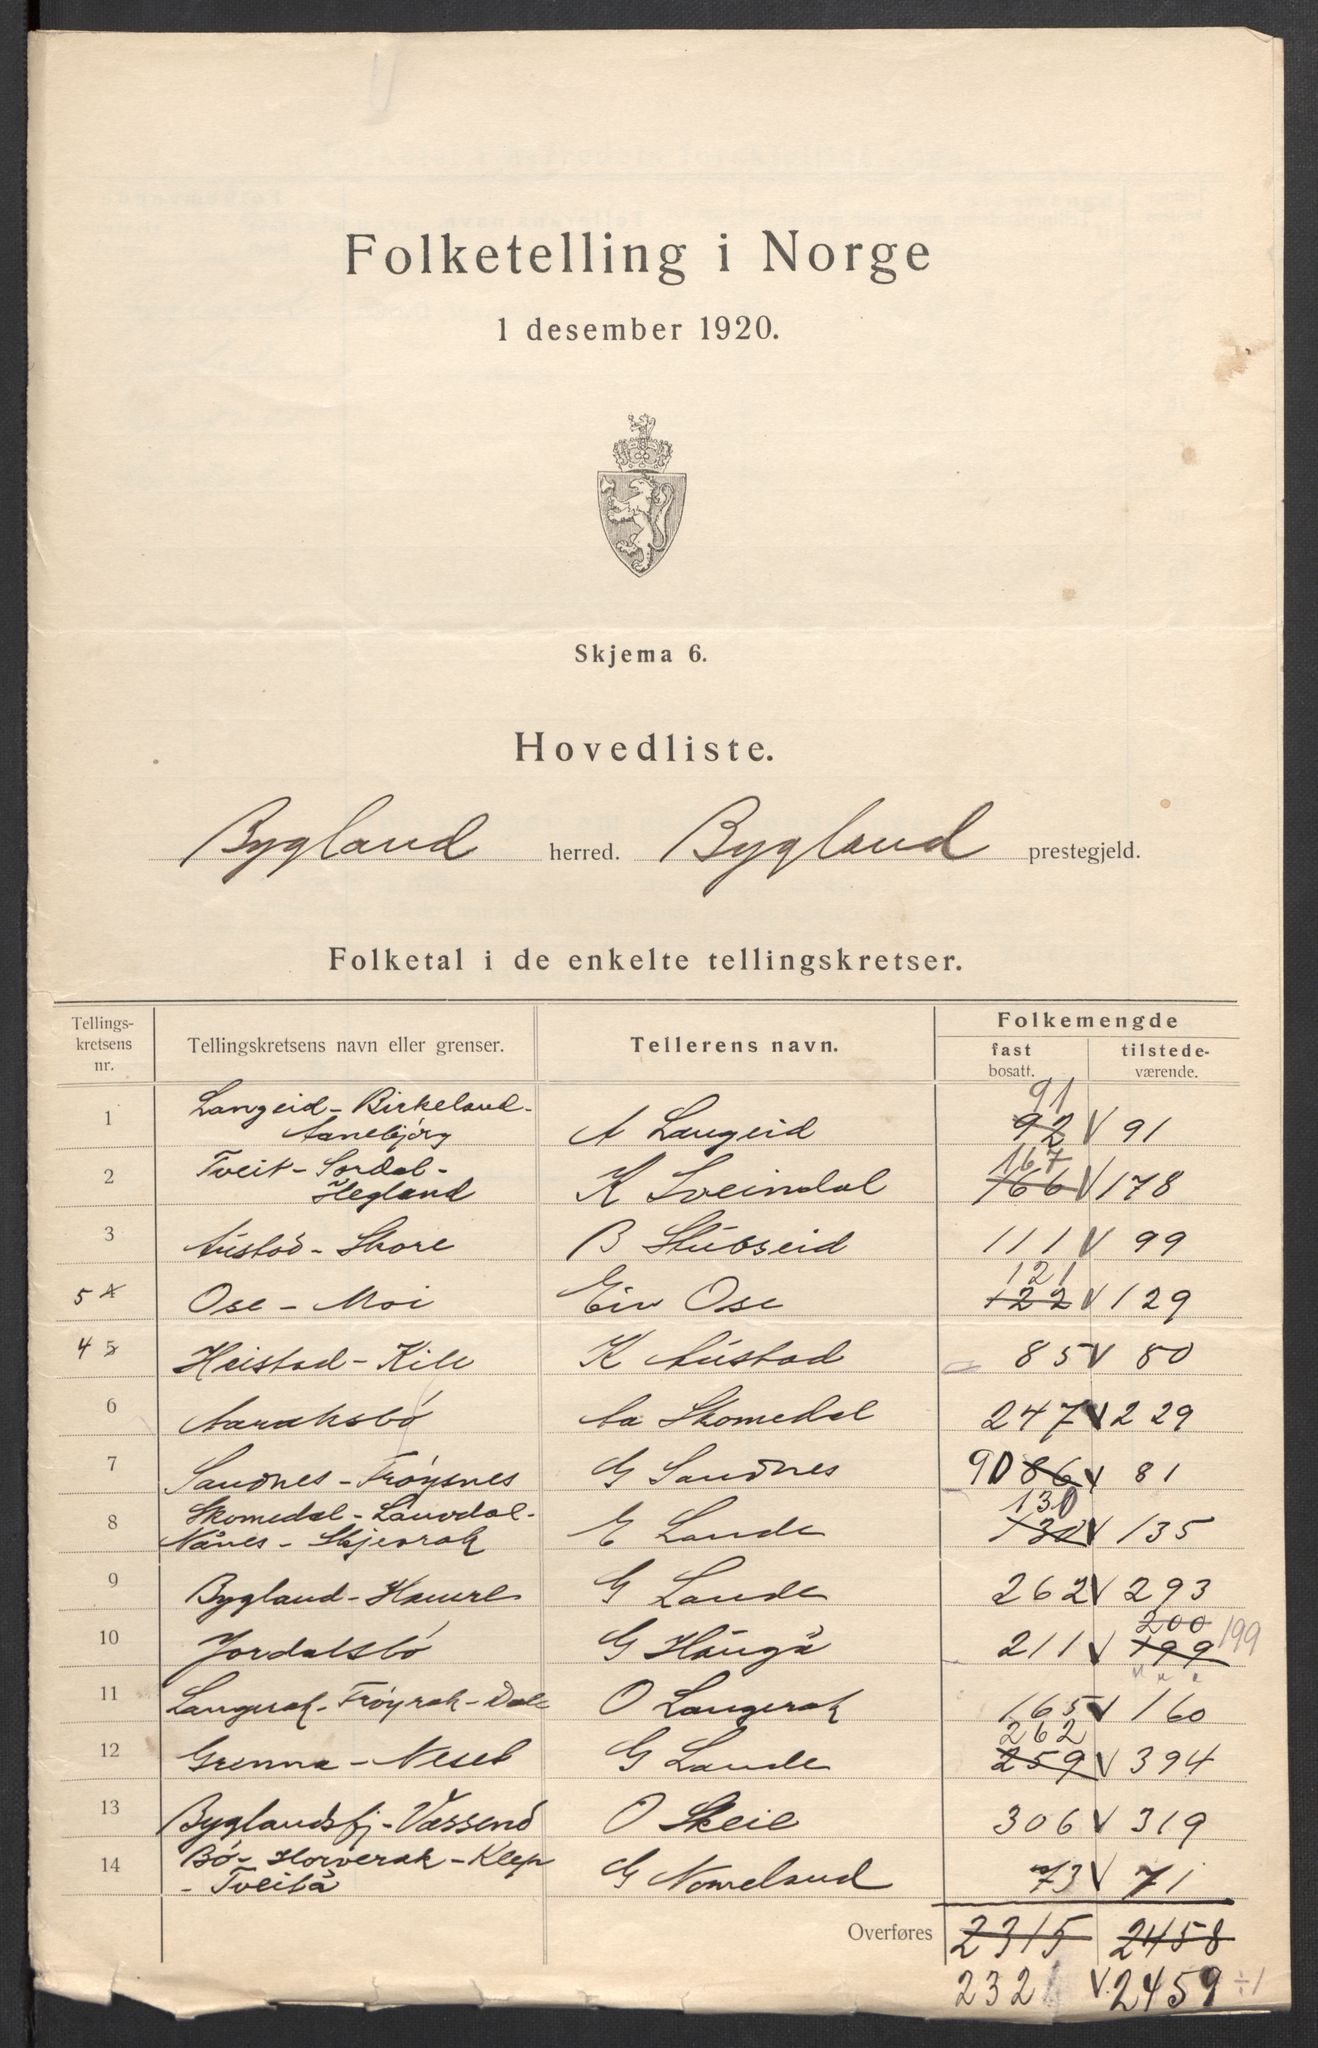 Folketelling i Norge
1 desember 1920.
Skjema 6.
Hovedliste.
Bygland herred. Bygland prestegjeld.
Folketal i de enkelte tellingskretser.
Tellings-kretsens nr. Tellingskretsens navn eller grenser. Tellerens navn. Folkemengde
fast bosatt. tilstede-værende.
91
1 Langeid - Birkeland - Aanebjörg A Langeid 92 V 91
167
2 Tveit - Sordal - Hegland K Sveindal 166 V 178
3 Austad - Skore B Stubseid 111 V 99
121
5 4 Ose - Moi Eiv Ose 122 V 129
4 5 Heistad - Kile K Austad 85 V 80
6 Aaraksbö Aa Skomedal 247 V 229
7 Sandnes - Fröysnes G Sandnes 90 86 V 81
130
8 Skomedal - Lauvdal - Nånes - Skjevrak E Lande 130 V 135
9 Bygland - Haure G Lande 262 V 293
200
10 Jordalsbö G Haugå 211 V 199 199
11 Langerak - Fröyrak - Dale O Langerak 165 V 160
262
12 Grenna - Neset G Lande 259 V 394
13 Byglandsfj - Væssend O Skeie 306 V 319
14 Bö - Horverak - Klep - Tveitå G Nomeland 73 V 71
Overføres 2315 2458
232 V. 2459 ÷1